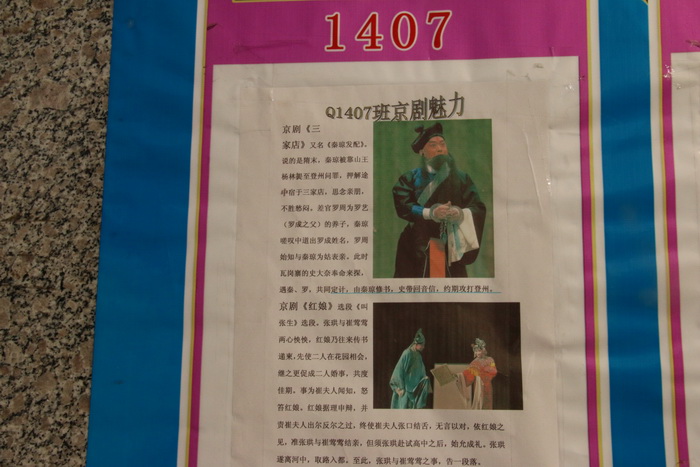 1407
Q1407班京剧魅力
京剧《三
家店》又名《秦琼发配》。
说的是隋末，秦琼被靠山王
杨林提至登州问罪，押解途
中宿于三家店，思念亲朋，
不胜愁闷。差官罗周为罗艺
（罗成之父）的养子，秦琼
嗟叹中道出罗成姓名，罗周
始知与秦琼为姑表亲，此时
瓦岗寨的史大奈奉命来探，
遇秦、罗，共同定计，由秦琼修书，史带回音信，约期攻打登州。
京剧《红娘》选段《叫
张生》选段，张珙与崔莺莺
两心怏怏，红娘乃往来传书
递柬，先使二人在花园相会，
继之更促成二人婚事，共度
佳期。事为崔夫人闻知，怒
笞红娘，红娘据理申辩，并
责崔夫人出尔反尔之过，终使崔夫人张口结舌，无言以对，依红娘之
见，准张珙与崔莺莺结亲，但须张珙赴试高中之后，始允成礼，张珙
遂离河中，取路入都。至此，张珙与崔莺莺之事，告一段落。